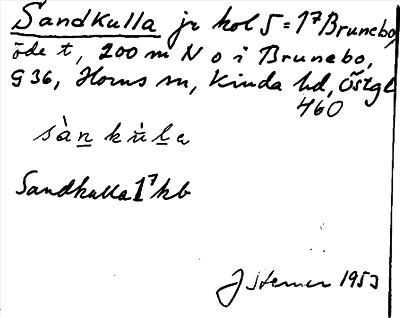 Sandkulla jr kol 5 = 1⁷ Brunebo,
öde t, 200 m N o i Brunebo,
G 36, Horns sn, Kinda hd, Östgl.
460
sàn kùla
Sandkulla 1⁷ kb
J Sterner 1953